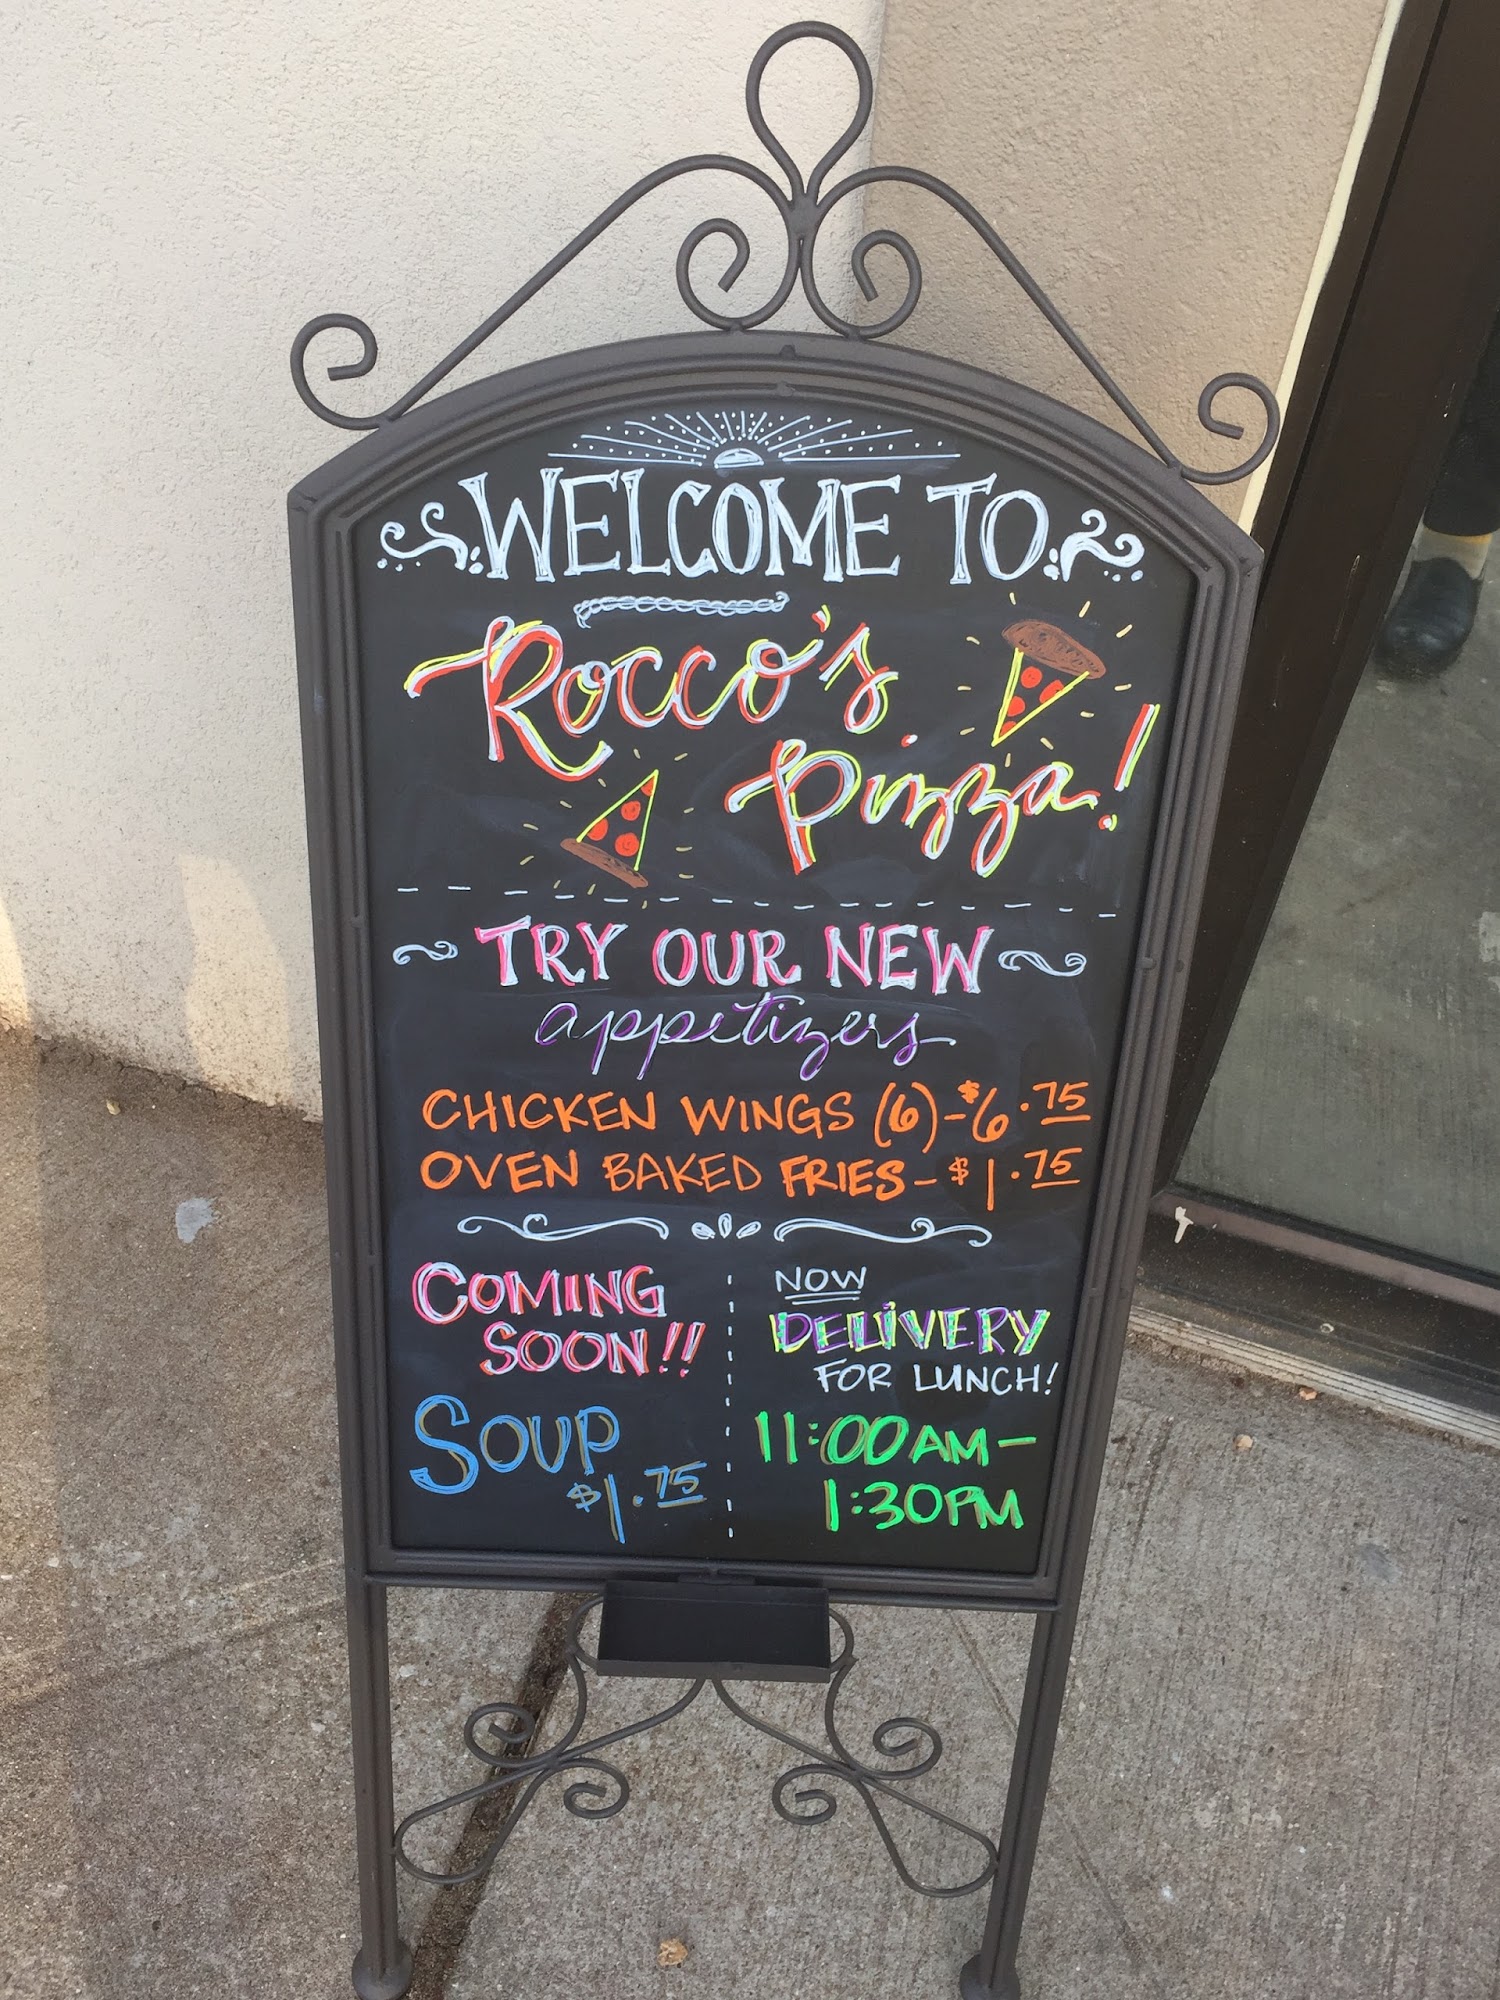 WELCOME TO
Rocco's
Pizza!
TRY OUR NEW
appetizers
CHICKEN WINGS (6) - $6.75
OVEN BAKED FRIES - $1.75
COMING
SOON!!
SOUP
$1.75
NOW
DELIVERY
FOR LUNCH!
11:00AM -
1:30PM